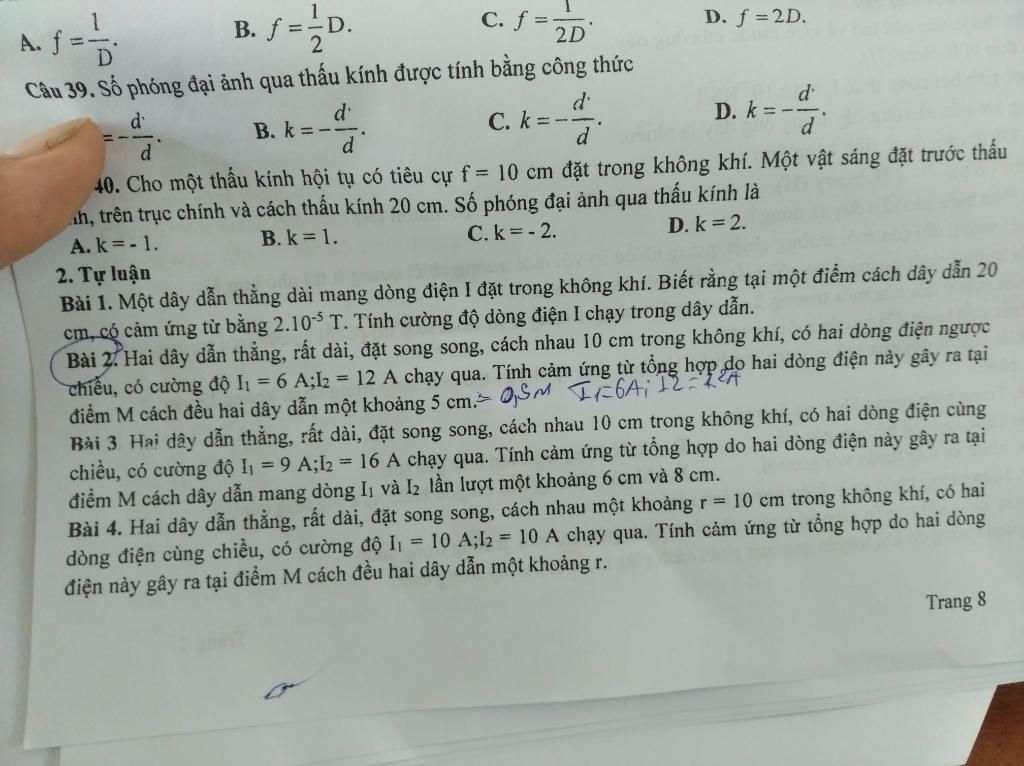 A. f = 1/D. B. f = 1/2 D. C. f = 1/2D. D. f = 2D.
Câu 39. Số phóng đại ảnh qua thấu kính được tính bằng công thức
= -d'/d. B. k = -d'/d. C. k = -d'/d. D. k = -d'/d.
40. Cho một thấu kính hội tụ có tiêu cự f = 10 cm đặt trong không khí. Một vật sáng đặt trước thấu
nh, trên trục chính và cách thấu kính 20 cm. Số phóng đại ảnh qua thấu kính là
A. k = - 1. B. k = 1. C. k = - 2. D. k = 2.
2. Tự luận
Bài 1. Một dây dẫn thẳng dài mang dòng điện I đặt trong không khí. Biết rằng tại một điểm cách dây dẫn 20
cm, có cảm ứng từ bằng 2.10⁻⁵ T. Tính cường độ dòng điện I chạy trong dây dẫn.
Bài 2. Hai dây dẫn thẳng, rất dài, đặt song song, cách nhau 10 cm trong không khí, có hai dòng điện ngược
chiều, có cường độ I₁ = 6 A;I₂ = 12 A chạy qua. Tính cảm ứng từ tổng hợp do hai dòng điện này gây ra tại
điểm M cách đều hai dây dẫn một khoảng 5 cm. = 0,5M I₁=6A; I2=12A
Bài 3 Hai dây dẫn thẳng, rất dài, đặt song song, cách nhau 10 cm trong không khí, có hai dòng điện cùng
chiều, có cường độ I₁ = 9 A;I₂ = 16 A chạy qua. Tính cảm ứng từ tổng hợp do hai dòng điện này gây ra tại
điểm M cách dây dẫn mang dòng I₁ và I₂ lần lượt một khoảng 6 cm và 8 cm.
Bài 4. Hai dây dẫn thẳng, rất dài, đặt song song, cách nhau một khoảng r = 10 cm trong không khí, có hai
dòng điện cùng chiều, có cường độ I₁ = 10 A;I₂ = 10 A chạy qua. Tính cảm ứng từ tổng hợp do hai dòng
điện này gây ra tại điểm M cách đều hai dây dẫn một khoảng r.
Trang 8